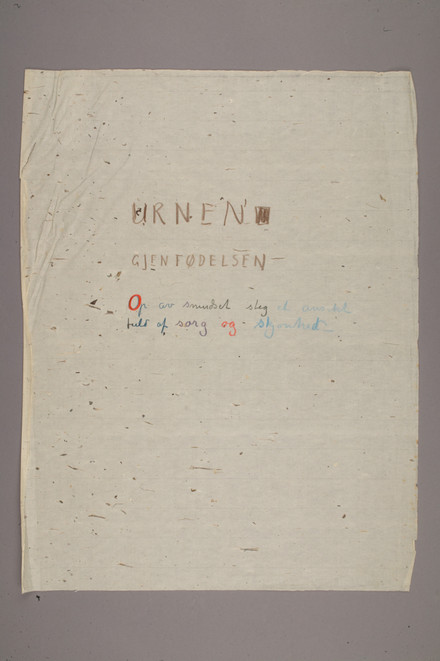 URNEN
GJENFØDELSEN—
Op av smudset steg et ansikt
fuld af sorg og skjønhed